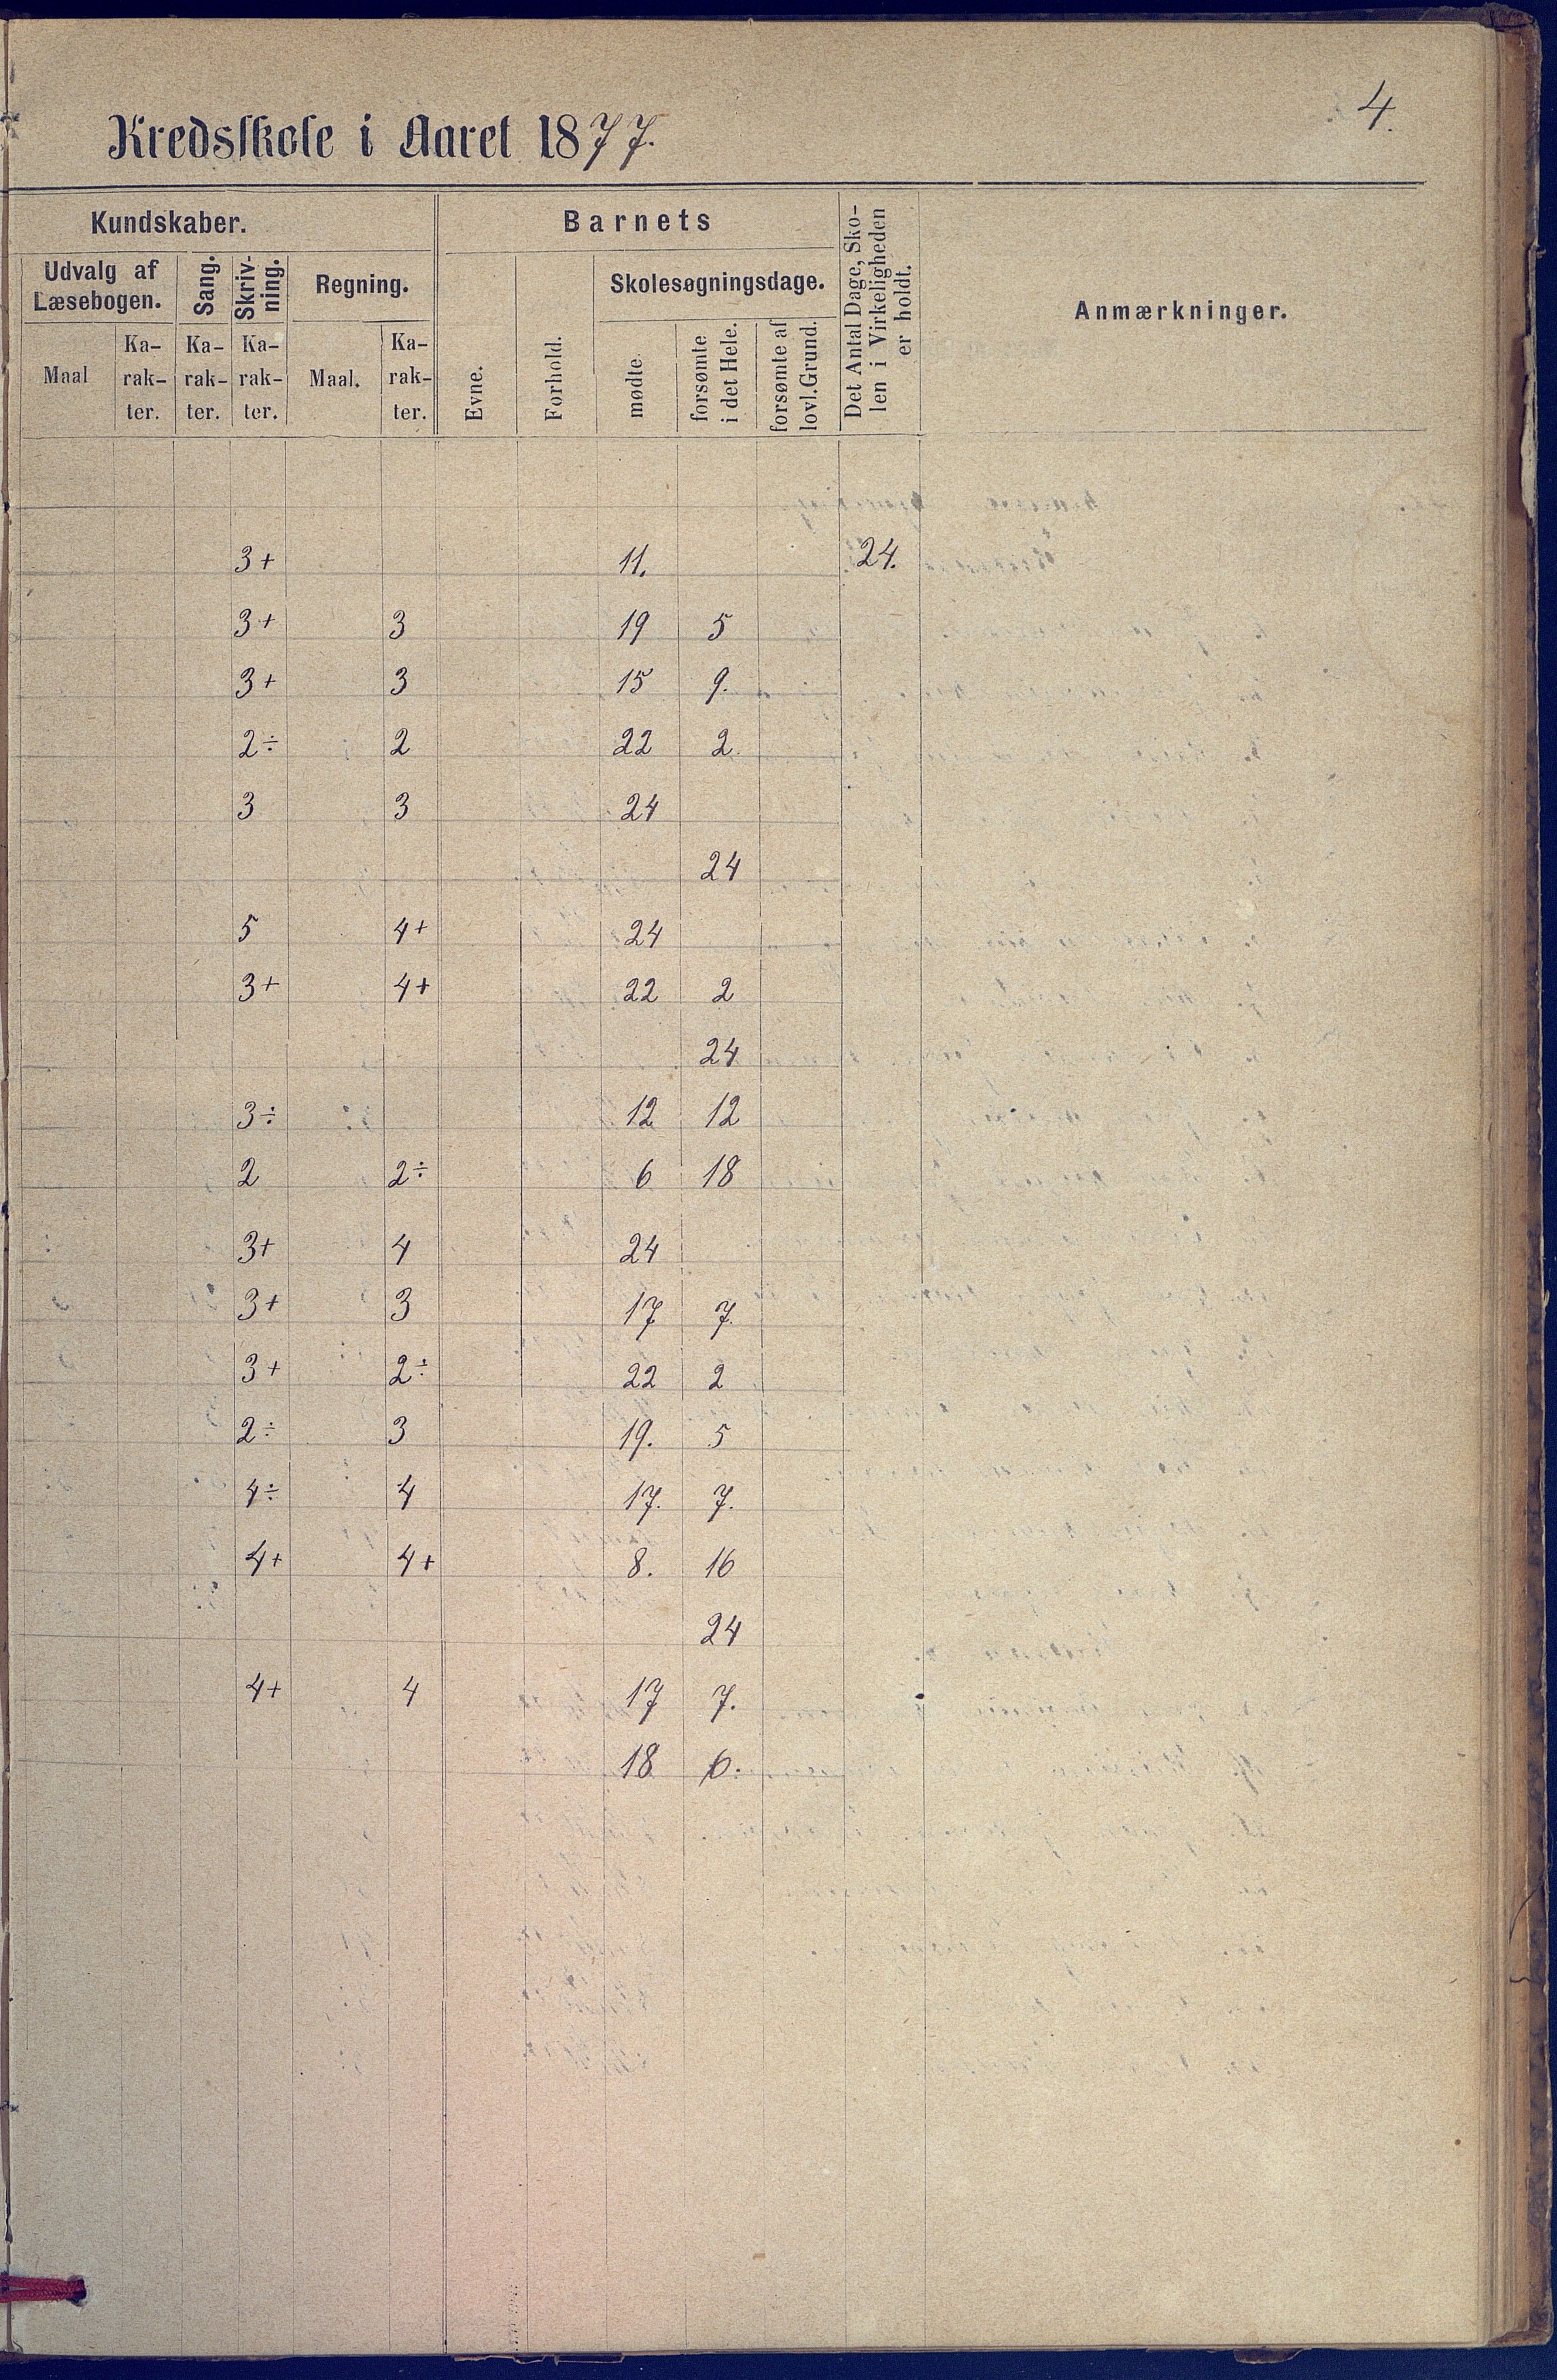 4.
Kredsskole i Aaret 1877.
Kundskaber. Barnets Det Antal Dage, Sko-len i Virkeligheden er holdt. Anmærkninger.
Udvalg af Læsebogen. Sang. Skriv-ning. Regning. Evne. Forhold. Skolesøgningsdage.
Maal Ka-rak-ter. Ka-rak-ter. Ka-rak-ter. Maal. Ka-rak-ter. mødte. forsømte i det Hele. forsømte af lovl. Grund.
3+ 11. 24.
3+ 3 19 5
3+ 3 15 9.
2÷ 2 22 2.
3 3 24
24
5 4+ 24
3+ 4+ 22 2
24
3÷ 12 12
2 2÷ 6 18
3+ 4 24
3+ 3 17 7.
3+ 2÷ 22 2
2÷ 3 19. 5
4÷ 4 17. 7.
4+ 4+ 8. 16
24
4+ 4 17 7.
18 6.